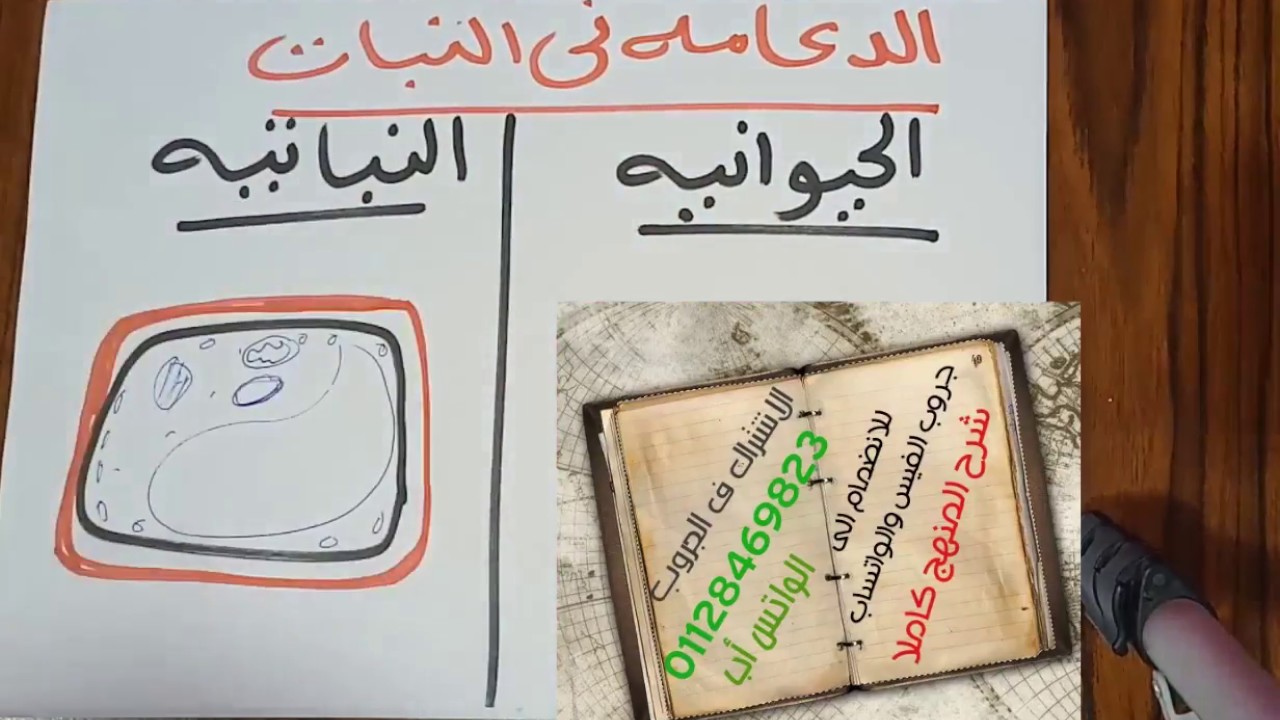 الدعامه فى النبات
الحيوانيه
النباتيه
شرح المنهج كاملا
جروب الفيس والواتساب
للانضمام الى
الاشتراك ف الجروب
01128469823
الواتس أب